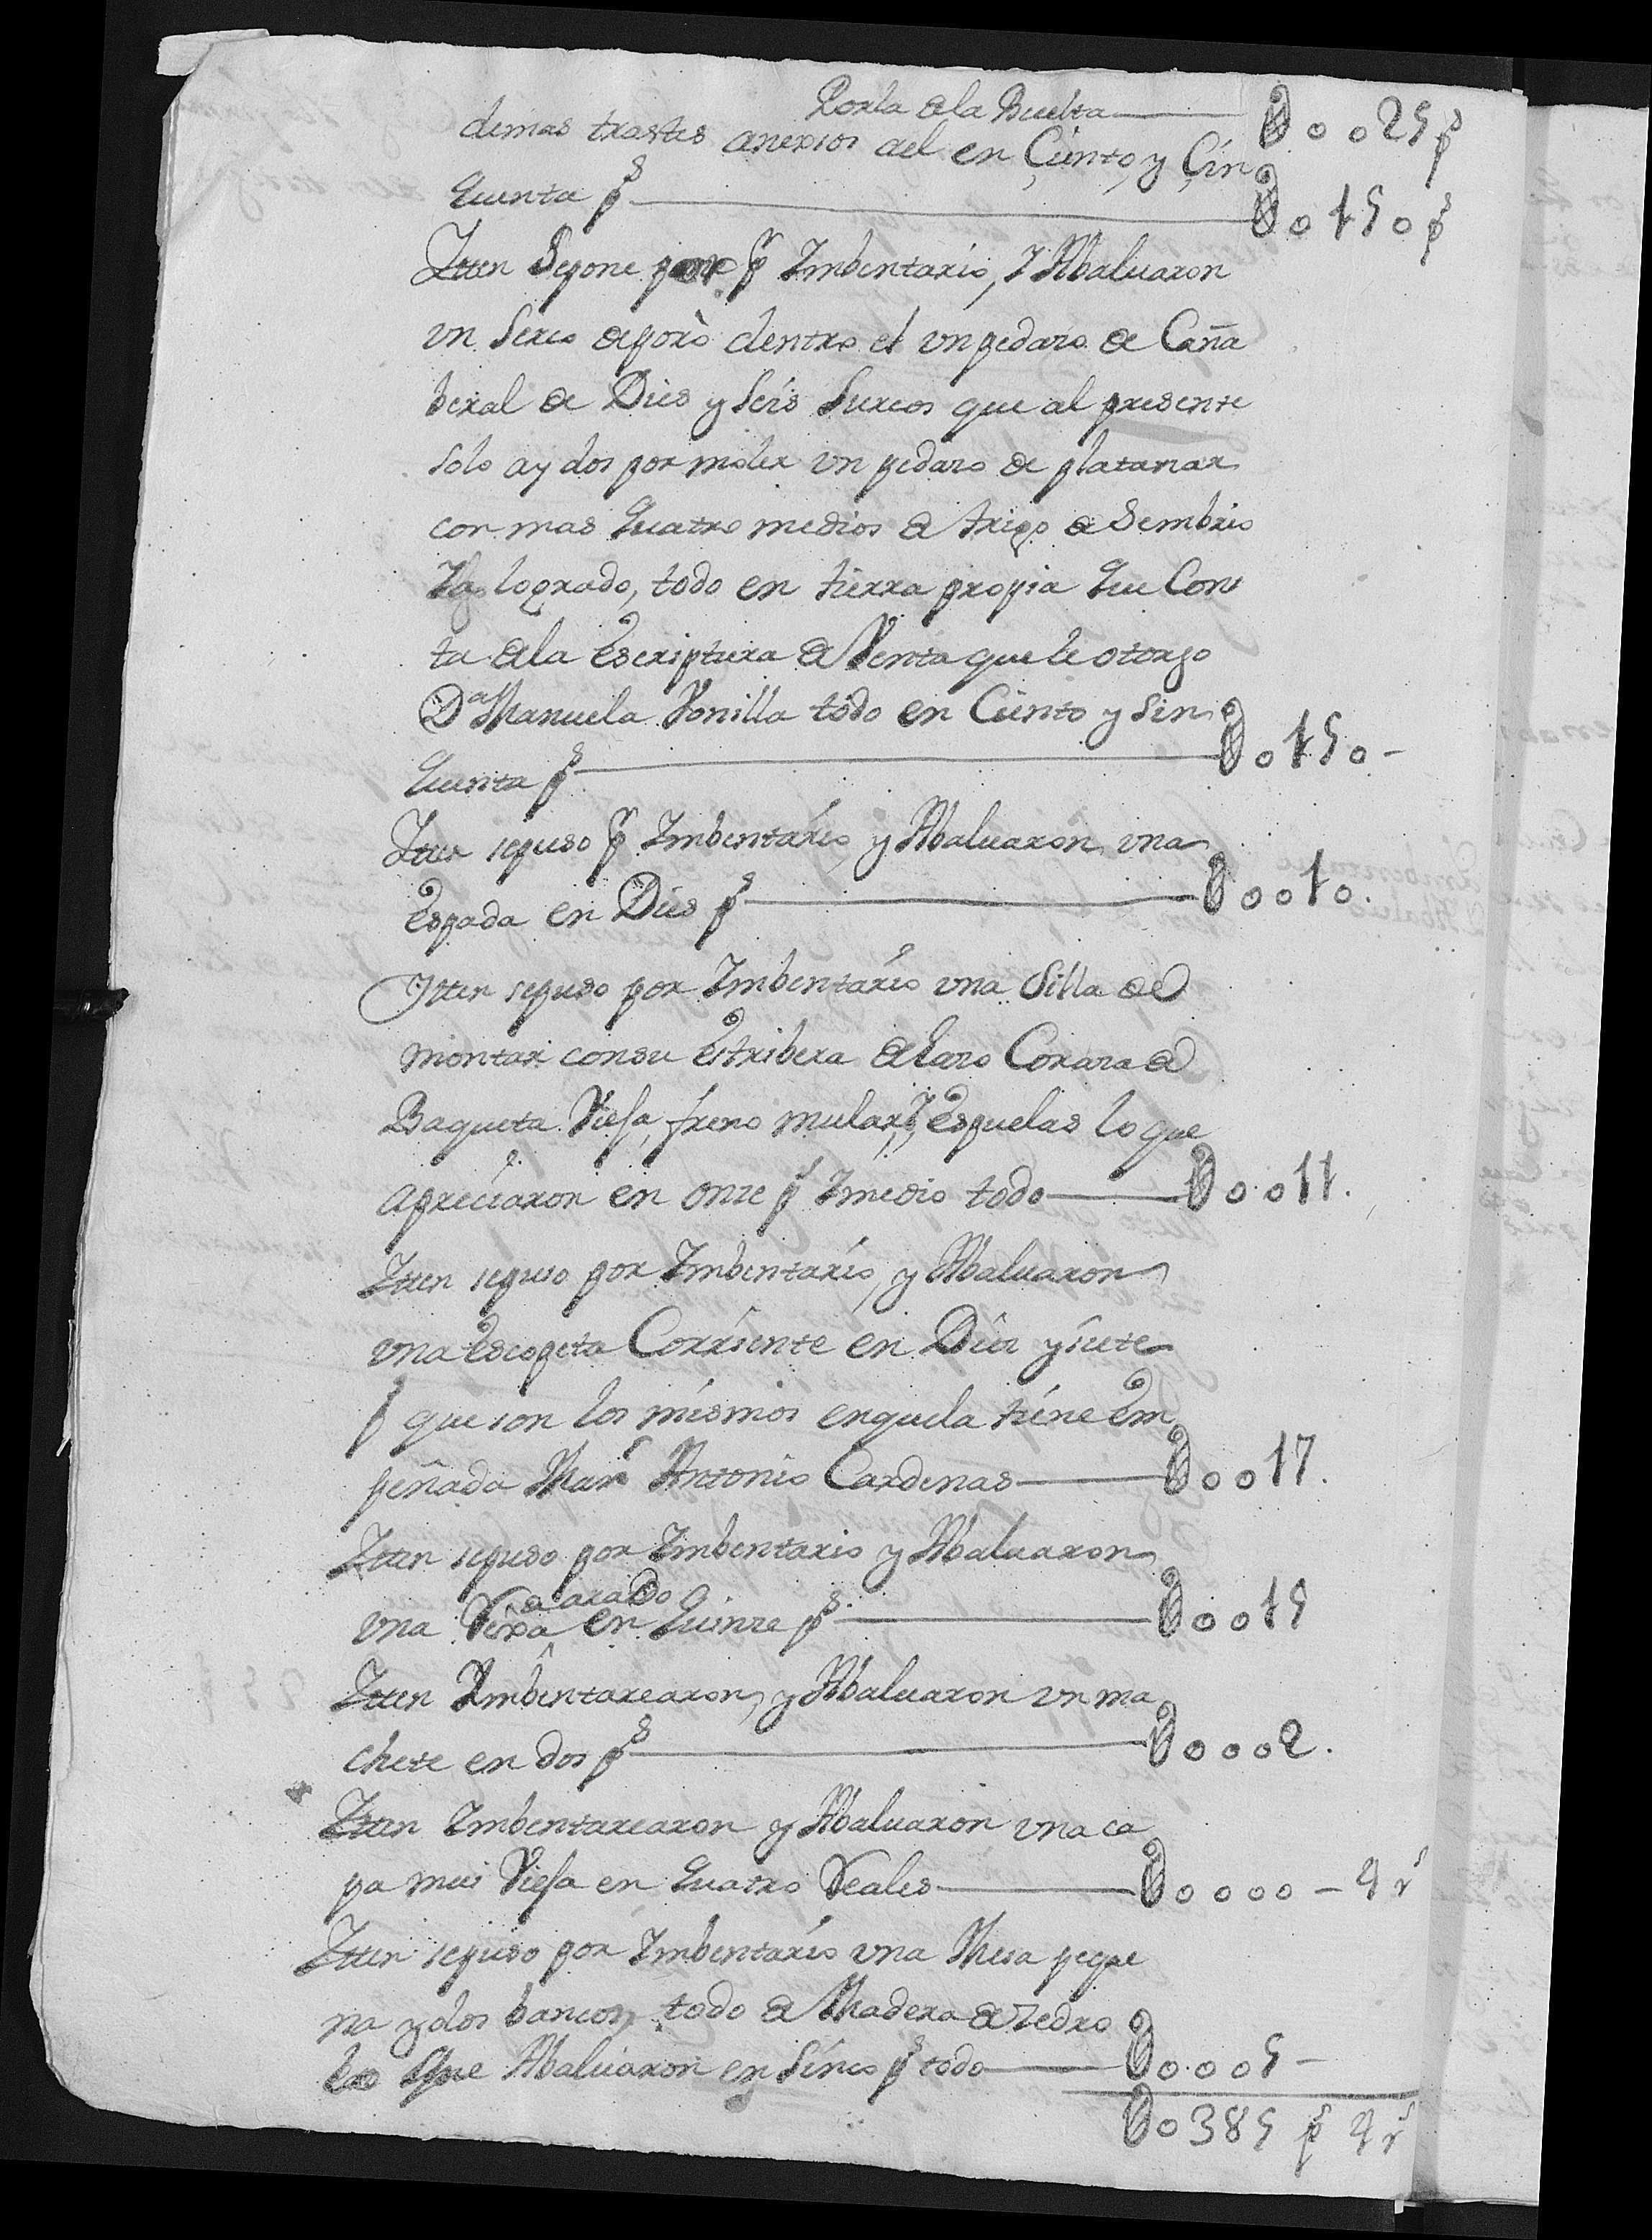 Porla de la Buelta — U o o 25 ps
demas trastes anexsos ael en Ciento, y Cin
quenta ps — U o 150 ps
Itten Sepone pore pr Imbentario, Y Abaluaron
vn Serco deporò dentro el vn pedazo de Caña
beral de Dies y Seis Surcos que al presente
solo ay dos por moler vn pedazo de platanar
con mas quatro medios de trigo de Sembrio
Ya logrado, todo en tierra propia que Cons
ta de la Escriptura de Venta que le otorgo
Da Manuela Vonilla todo en Ciento y sin
quenta ps — U o 150 -
Itten sepuso pr Imbentario, y Abaluaron vna
Espada en Dies ps — U o o 10.
Itten sepuso por Imbentario vna Silla de
montar consu Estribera de lazo Coraza de
Baqueta Viesa, freno mular, Y espuelas lo que
apreciaron en onze ps Y medio todo — U o o 11.
Itten sepuso por Imbentario, y Abaluaron
vna escopeta Corriente en Diez y siete
ps que son los mismos enquela tiene Em
peñada Marn Antonio Cardenas — U o o 17.
Itten sepuso por Imbentario y Abaluaron
de arado
vna Rexa en quinze ps — U o o 15
Itten Imbentarearon, y Abaluaron vn ma
chete en dos ps — U o o o 2.
Itten Imbentarearon y Abaluaron vna ca
pa mui Viesa en quatro Reales — U o o o o - 4 rs
Itten sepuso por Imbentario vna Mesa peque
na y dos bancos, todo de Madera de zedro
lo que Abaluaron en Sinco ps todo — U o o o 5 -
U o 385 ps 4 rs